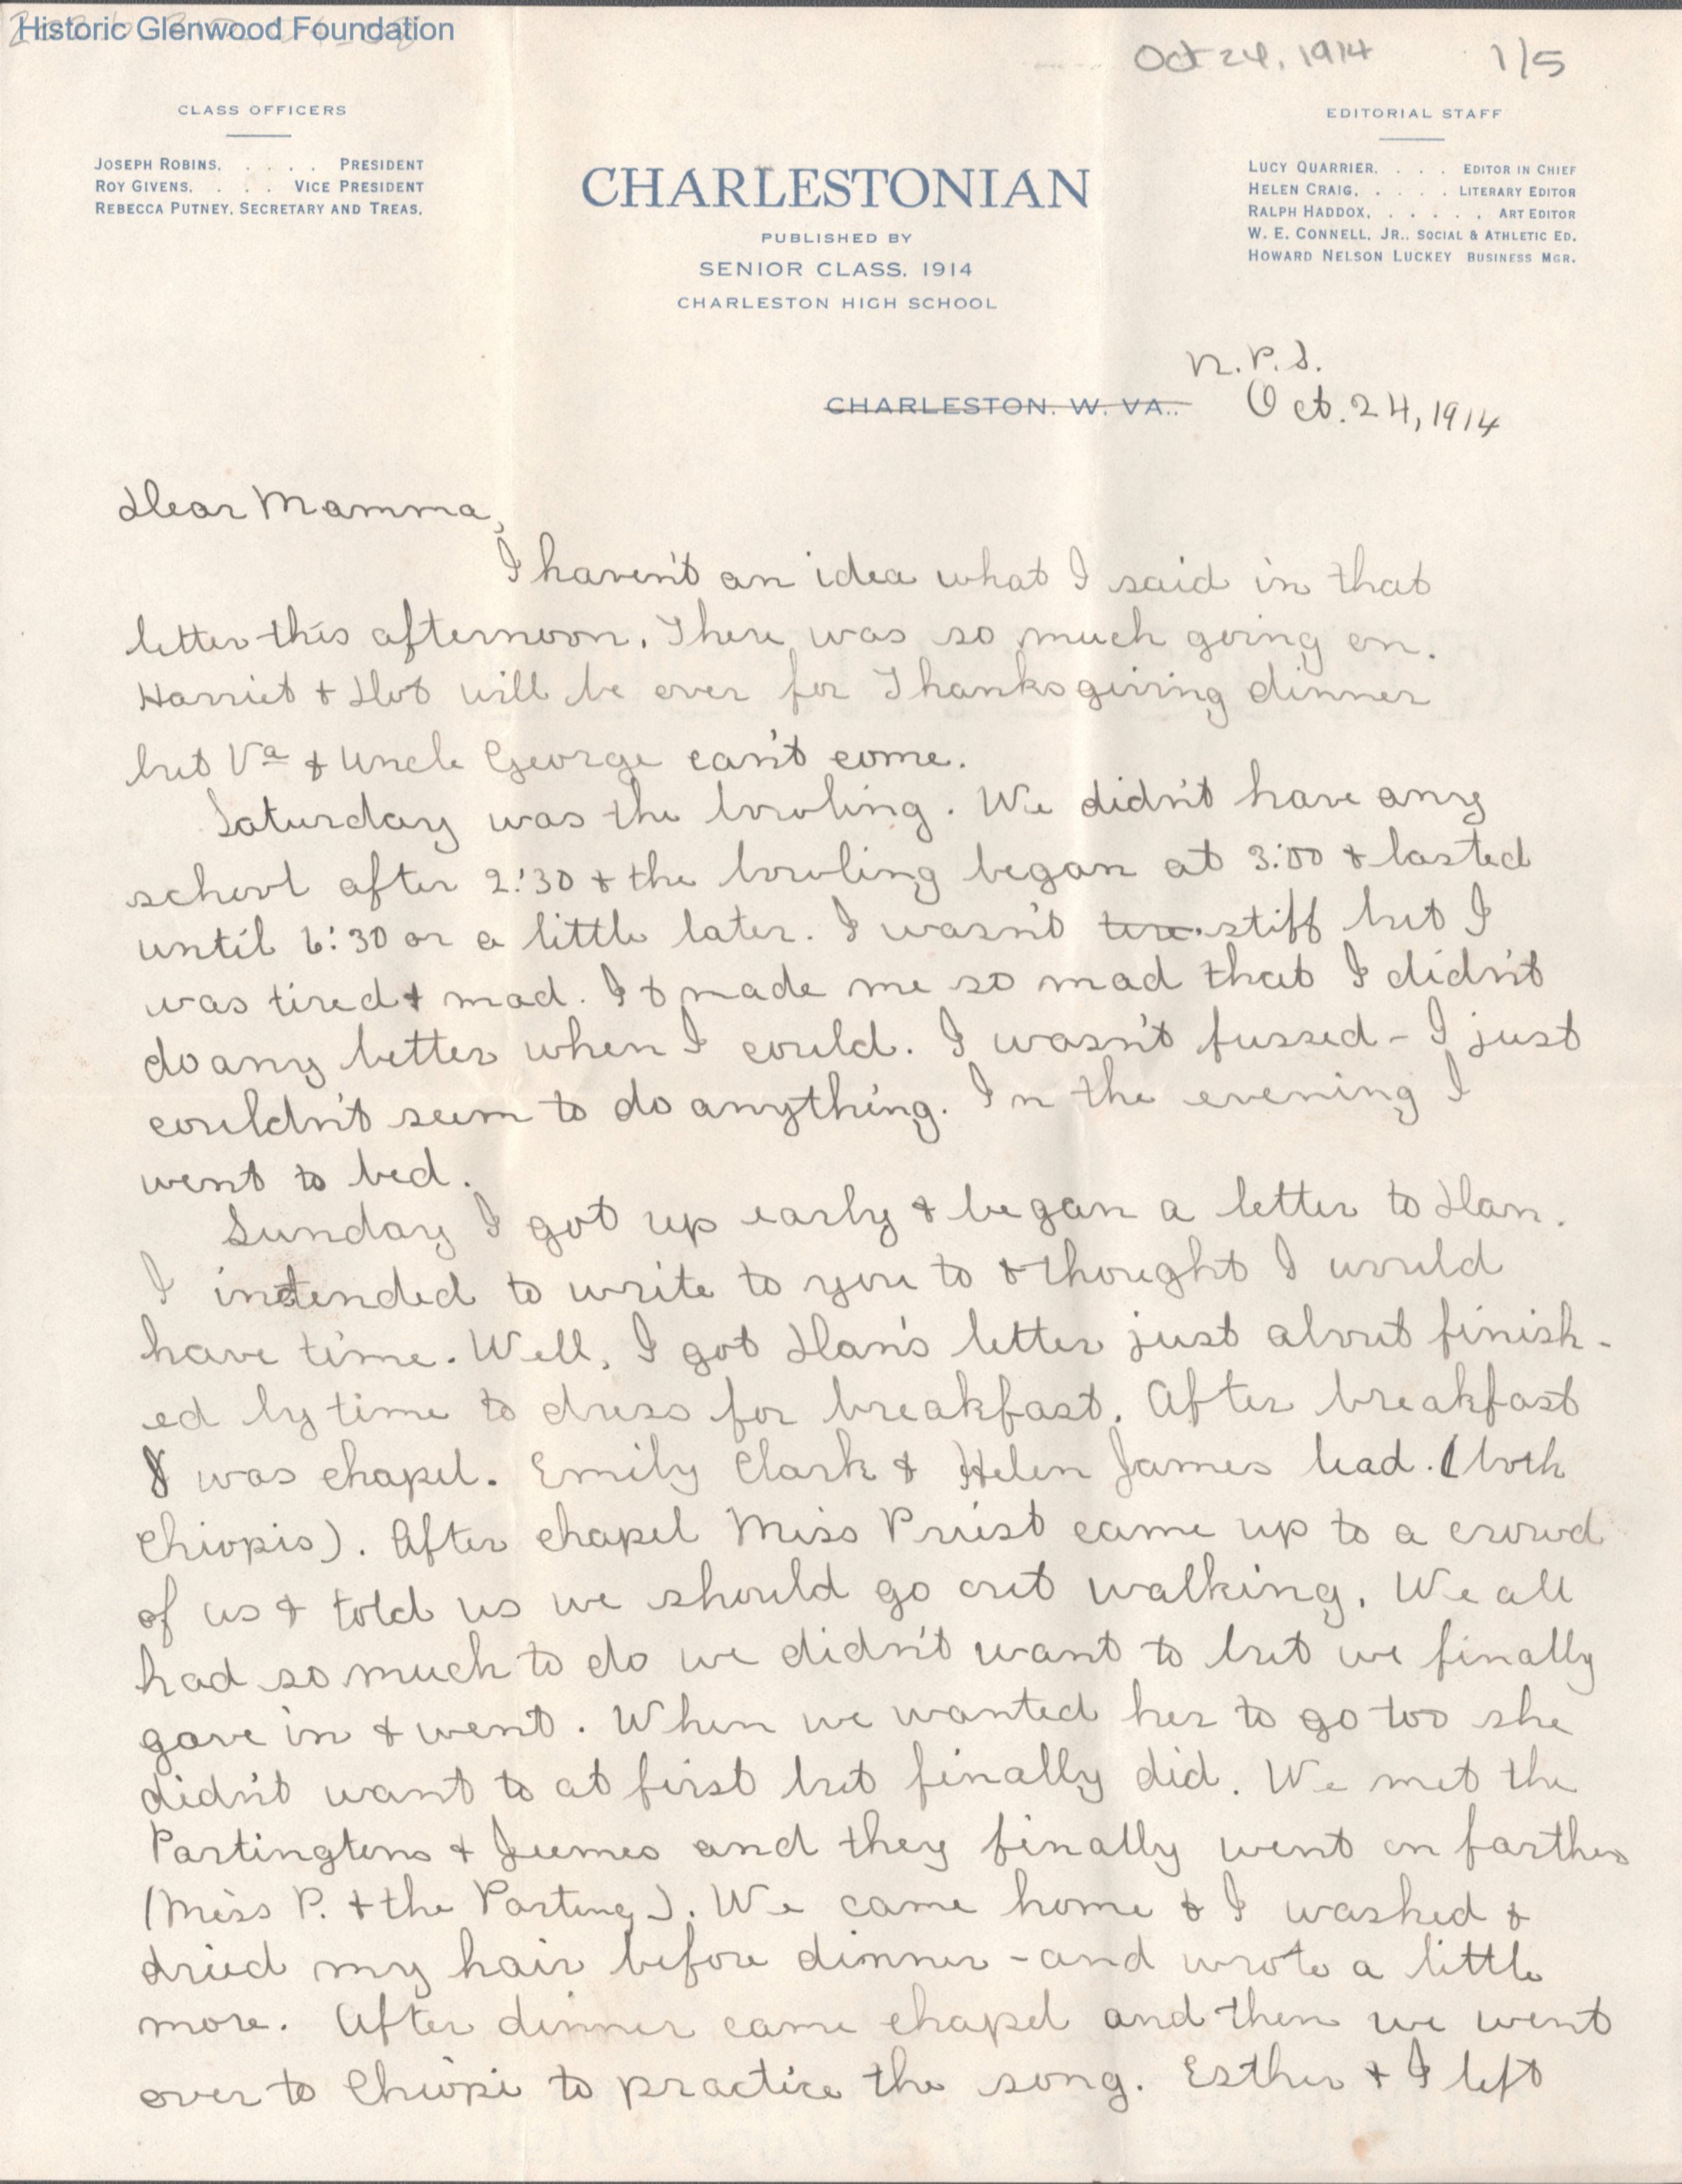 Historic Glenwood Foundation
Oct 24, 1914 1/5
CLASS OFFICERS
JOSEPH ROBINS. . . . . PRESIDENT
ROY GIVENS. . . . VICE PRESIDENT
REBECCA PUTNEY. SECRETARY AND TREAS.
CHARLESTONIAN
PUBLISHED BY
SENIOR CLASS. 1914
CHARLESTON HIGH SCHOOL
EDITORIAL STAFF
LUCY QUARRIER. . . . EDITOR IN CHIEF
HELEN CRAIG. . . . . LITERARY EDITOR
RALPH HADDOX. . . . . . ART EDITOR
W. E. CONNELL, JR.. SOCIAL & ATHLETIC ED.
HOWARD NELSON LUCKEY BUSINESS MGR.
N.P.S.
CHARLESTON. W. VA.. Oct. 24, 1914
Dear Mamma,
I haven't an idea what I said in that
letter this afternoon. There was so much going on.
Harriet & Dot will be over for Thanksgiving dinner
but Va & Uncle George can't come.
Saturday was the bowling. We didn't have any
school after 2:30 & the bowling began at 3:00 & lasted
until 6:30 or a little later. I wasn't stiff but I
was tired & mad. It made me so mad that I didn't
do any better when I could. I wasn't fussed - I just
couldn't seem to do anything. In the evening I
went to bed.
Sunday I got up early & began a letter to Dan.
I intended to write to you to & thought I would
have time. Well, I got Dan's letter just about finish-
ed by time to dress for breakfast. After breakfast
was chapel. Emily Clark & Helen James lead. (both
Chiopis). After chapel Miss Priest came up to a crowd
of us & told us we should go out walking. We all
had so much to do we didn't want to but we finally
gave in & went. When we wanted her to go too she
didn't want to at first but finally did. We met the
Partingtons & and they finally went on farther
(Miss P. & the Parting). We came home & I washed &
dried my hair before dinner - and wrote a little
more. After dinner came chapel and then we went
over to Chiopi to practice the song. Esther & I left